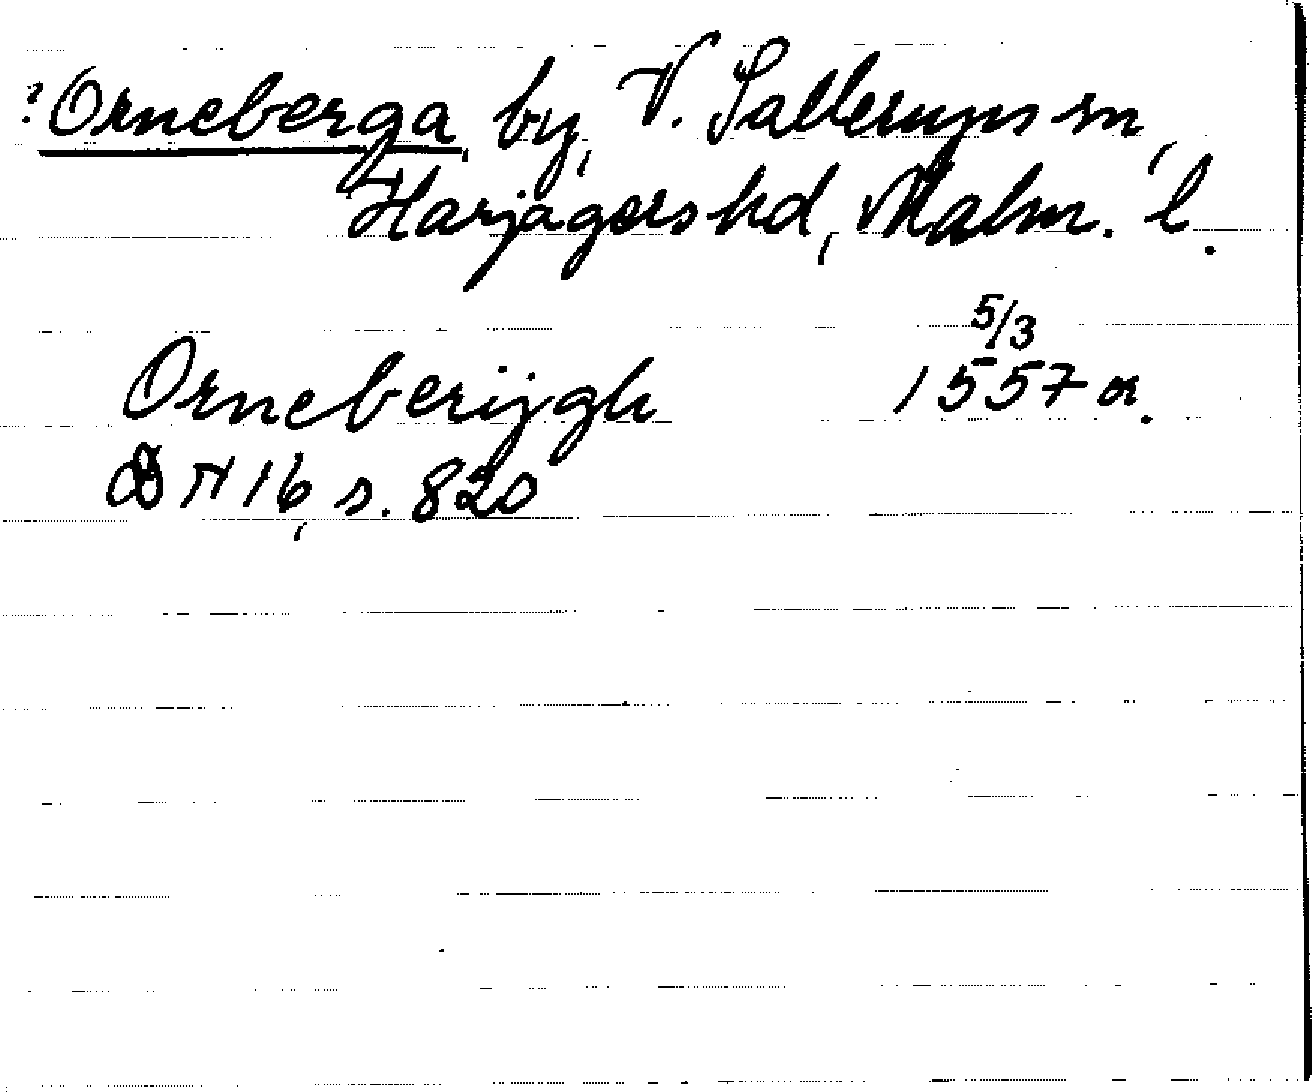 ? Orneberga, by, V. Sallerups sn,
Harjagers hd, Malm. l.
Orneberijgh 5/3 1557 or.
DN 16, s. 820